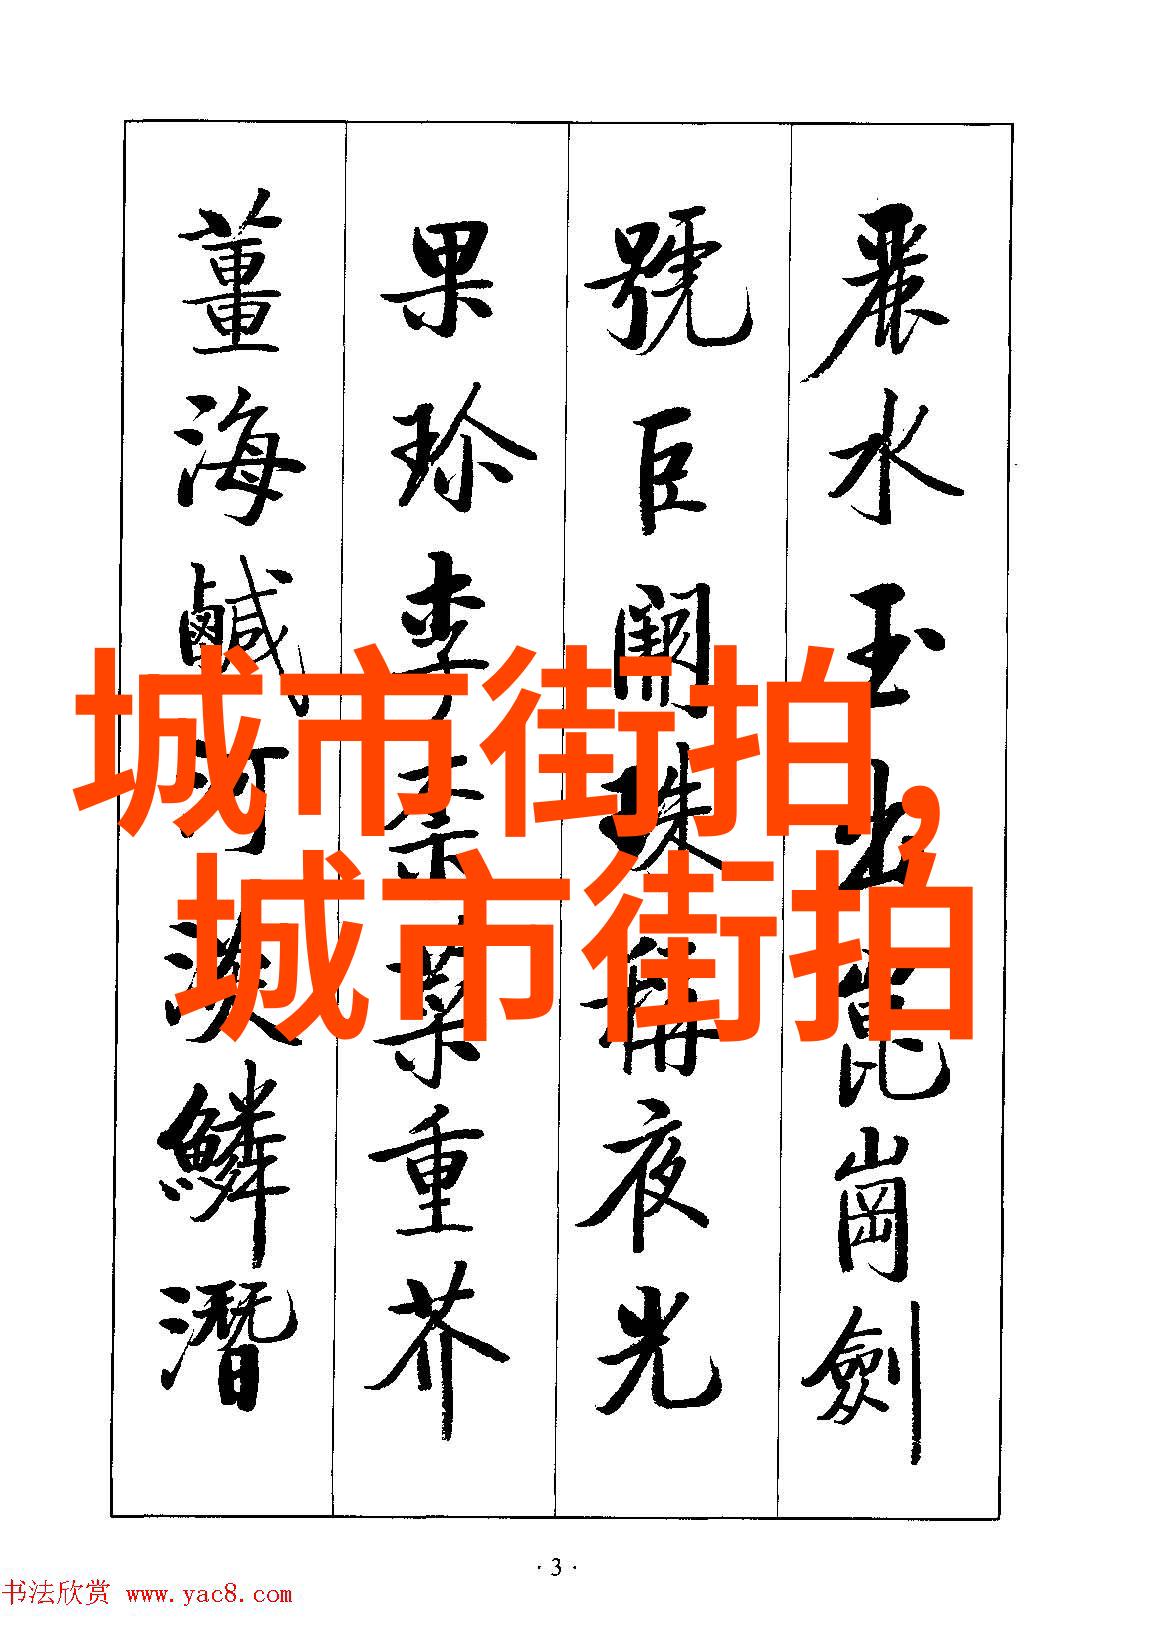 麗水玉出崑崗劍
號巨闕珠稱夜光
果珍李柰菜重芥
薑海鹹河淡鱗潛
城市街拍,
城市街拍
·3·
书法欣赏 www.yac8.com